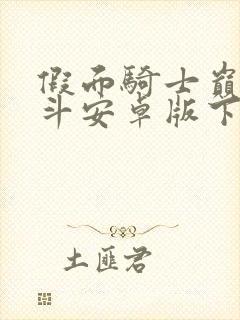 假面騎士巔
斗安卓版下
土匪君